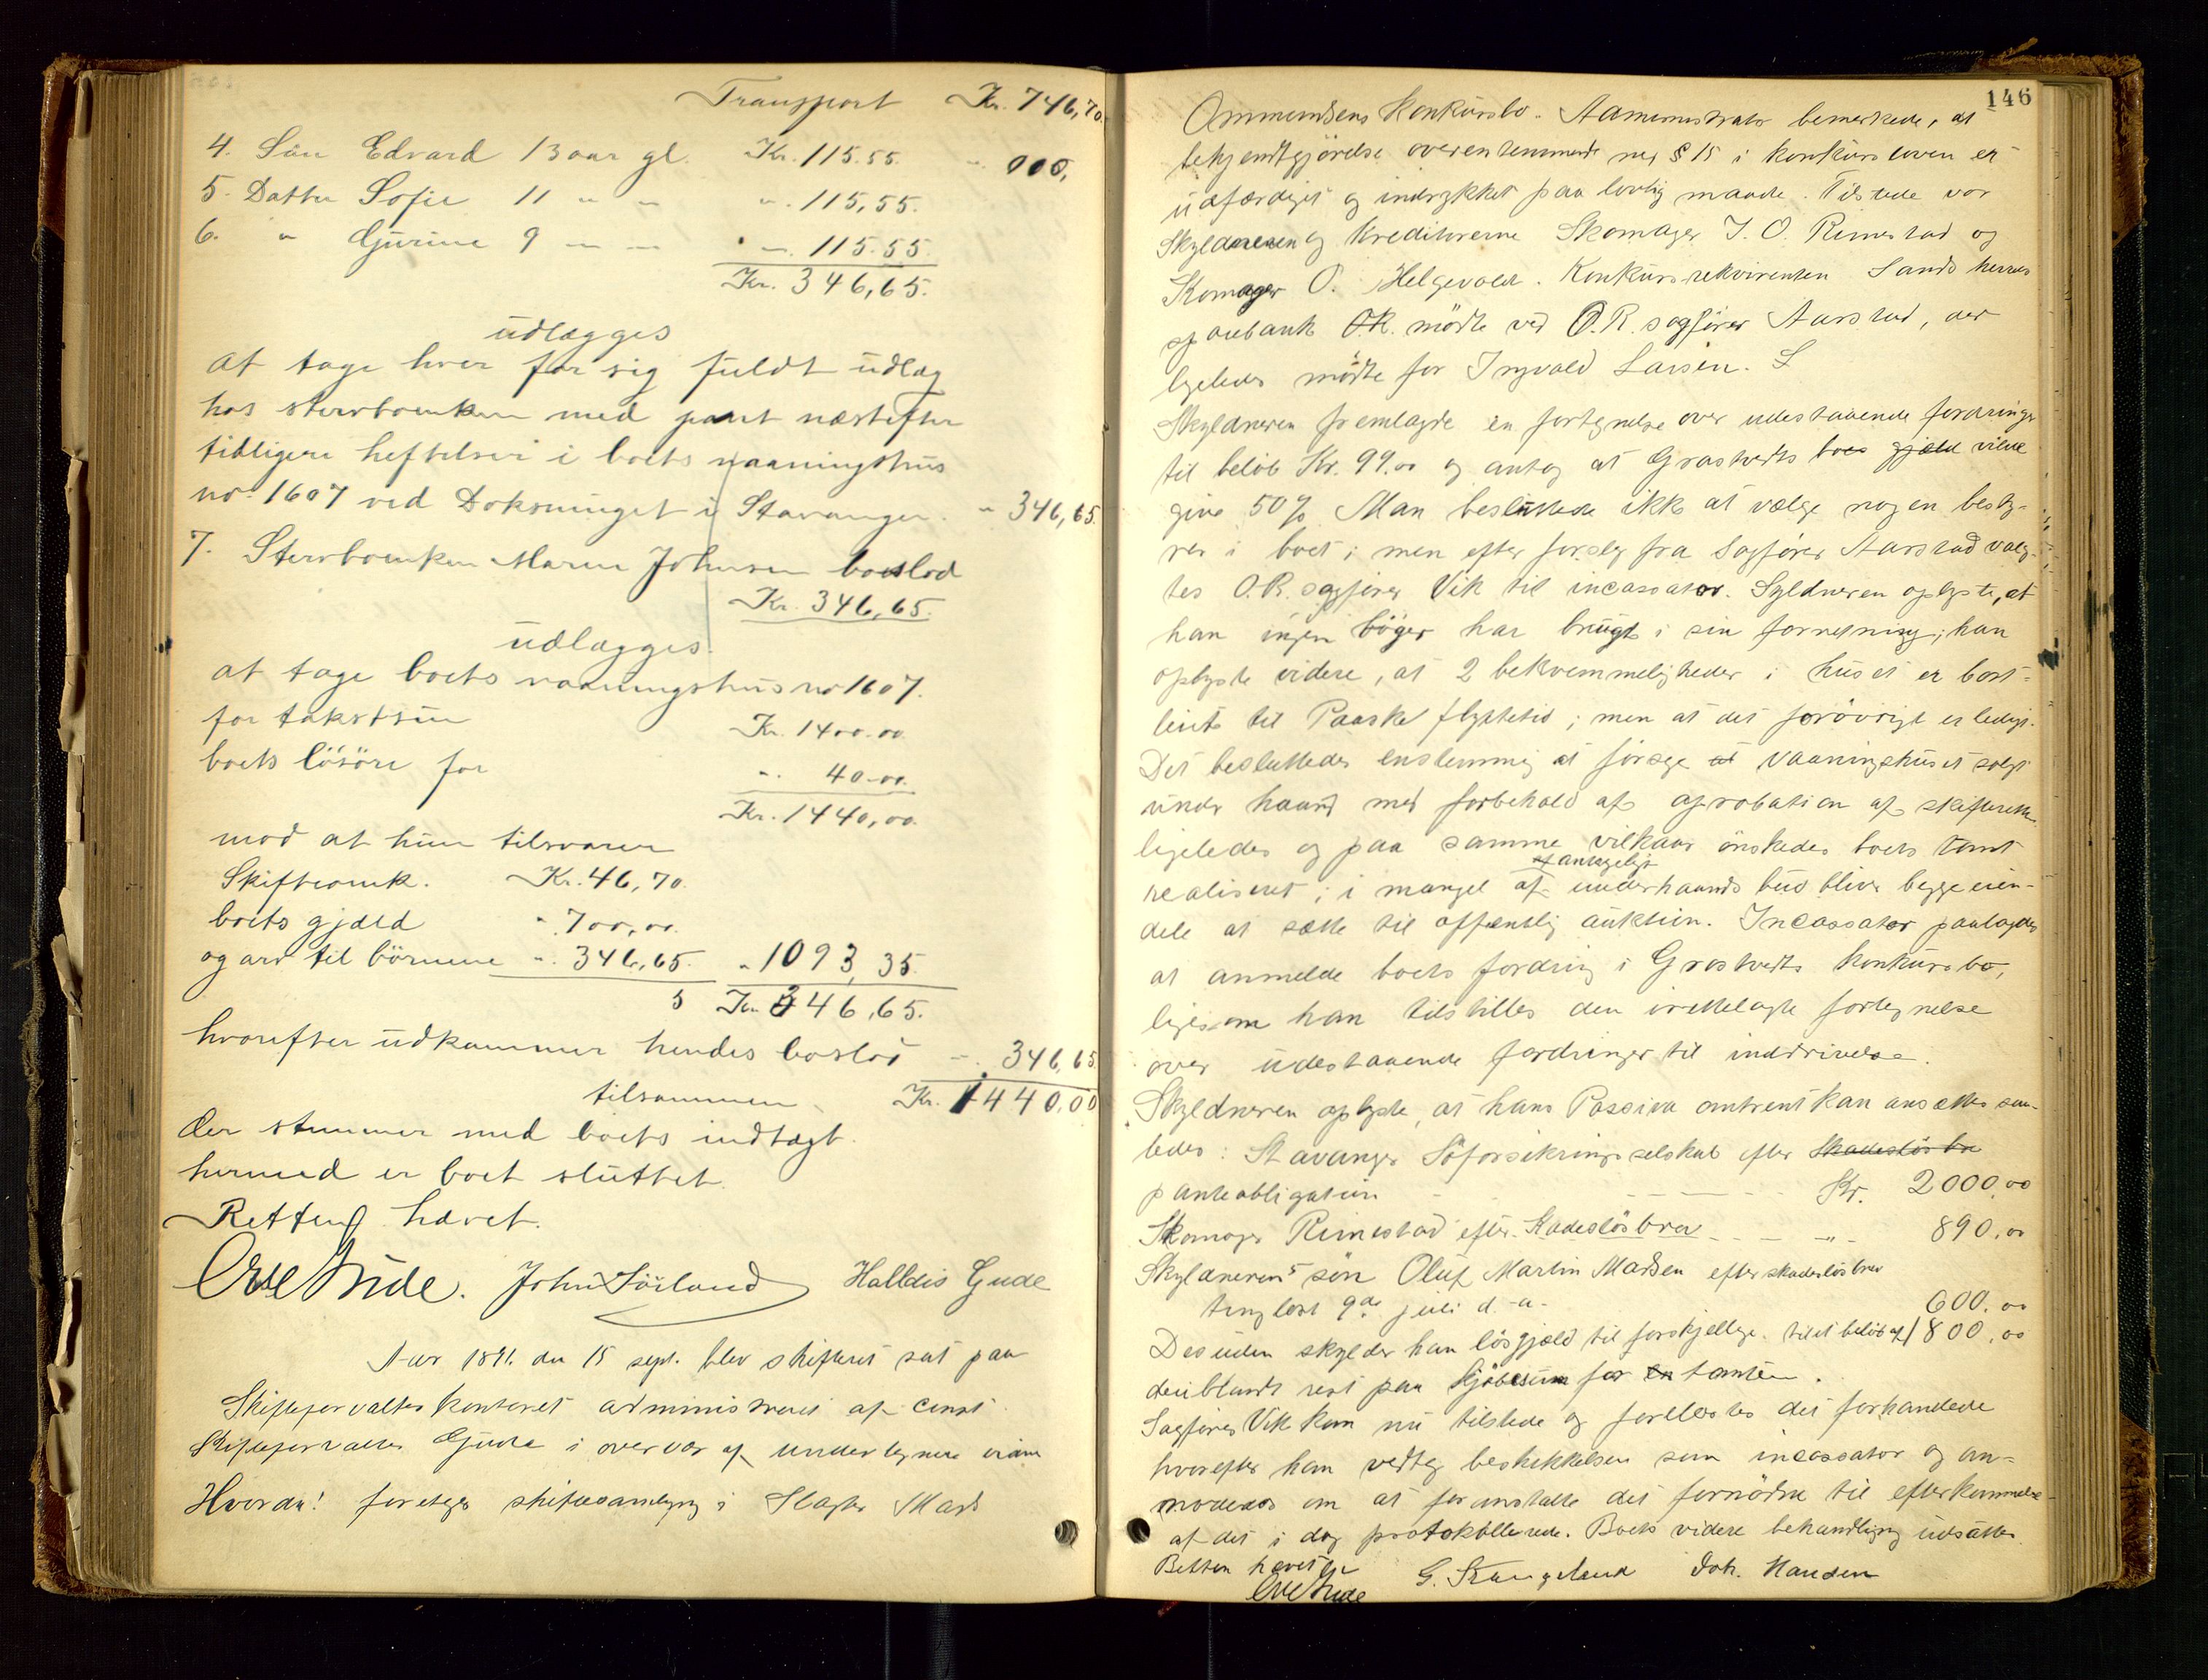 Transport Kr. 746,70.
4. Sön Edvard 13 aar gl. Kr. 115.55. " 000,
5. Datter Sofie 11 " " ". 115,55.
6. " Gurine 9 " " ". 115.55.
Kr. 346,65.
udlægges
at tage hver for sig fuldt udlæg
hos stervboenken med pant næstefter
tidligere heftelser i boets vaaningshus
no. 1607 ved Doksninget i Stavanger. " 346,65.
7. Stervboenken Maren Johnsen boeslod
Kr. 346,65.
udlægges.
at tage boets vaaningshus no 1607.
for takstsum Kr. 1400.00
boets lösöre for ". 40.00.
Kr. 1440,00.
mod at hun tilsvarer
Skifteomk. Kr. 46,70.
boets gjæld ". 700,00.
og arv til börnene ". 346,65. " 1093,35.
5 Kr. 346,65.
hvorefter udkommer hendes boslod ". 346,65.
tilsammen Kr. 1440,00
der stemmer med boets indtægt.
hermed er boet sluttet.
Retten hævet.
Ove Gude. John Söiland Halldis Gude
Aar 1891. den 15 sept. blev skifteret sat paa
Skifteforvalterkontoret administreret af const.
Skifteforvalter Gude i overvær af undertegnede vidner
Hvorda! foretoges skiftesamling i Slagter Mads
146
Ommundsens Konkursbo. Administrator bemerkede, at
bekjendtgjörelse overensstemmende med § 15 i konkursloven er
udfærdiget og indrykket paa lovlig maade. Tilstede var
Skyldneren og Kreditorerne Skomager J. O. Rimestad og
Skomager O. Helgevold. Konkursrekvirenten Sands herreds
sparebank O.R. mödte ved O.R. sagförer Aarstad, der
ligeledes mödte for Ingvald Larsen. S
Skyldneren fremlagde en fortegnelse over udestaaende fordringer
til belöb Kr. 99.00 og antog at Grastveits boes gjæld vilde
give 50% Man besluttede ikke at vælge nogen besty-
rer i boet; men efter forslag fra Sagförer Aarstad valg-
tes O.R. sagförer Vik til incassator. Syldneren oplyste, at
han ingen böger har brugt i sin forretning; han
oplyste videre, at 2 bekvemmeligheder i huset er bort-
leiet til Paaske flyttetid; men at det forövrigt er ledigt.
Det besluttedes enstemmig at forsøge at vaaningshuset solgt
under haand med forbehold af aprobation af skifteretten
ligeledes og paa samme vilkaar önskedes boets tomt
realiseret; i mangel af antageligt underhaands bud bliver begge eien-
dele at sætte til offentlig auktion. Incassator paalagdes
at anmelde boets fordring i Grastveits konkursbo,
ligesom han tilstilles den irettelagte fortegnelse
over udestaaende fordringer til inddrivelse.
Skyldneren oplyste, at hans Passiva omtrent kan ansættes saa-
ledes: Stavanger Söforsikringsselskab efter Skadeslösbre
panteobligation - - - - Kr. 2000,00
Skomager Rimestad efter Skadeslösbrev - - - " - 890.00
Skyldnerens sön Oluf Martin Madsen efter skadeslösbrev
tinglæst 9de juli d. a. 600.00
Desuden skylder han lösgjæld til forskjellige. til et belöb af 1800.00
deriblandt rest paa Kjöbesum for en tomten.
Sagförer Vik kom nu tilstede og forelæstes det forhandlede
hvorefter han vedtog beskikkelsen som incassator og an-
modedes om at foranstalte det fornödne til efterkommelse
af det i dag protokollerede. Boets videre behandling udsættes.
Retten hævet.
Ove Gude G. Stangeland Joh. Handen